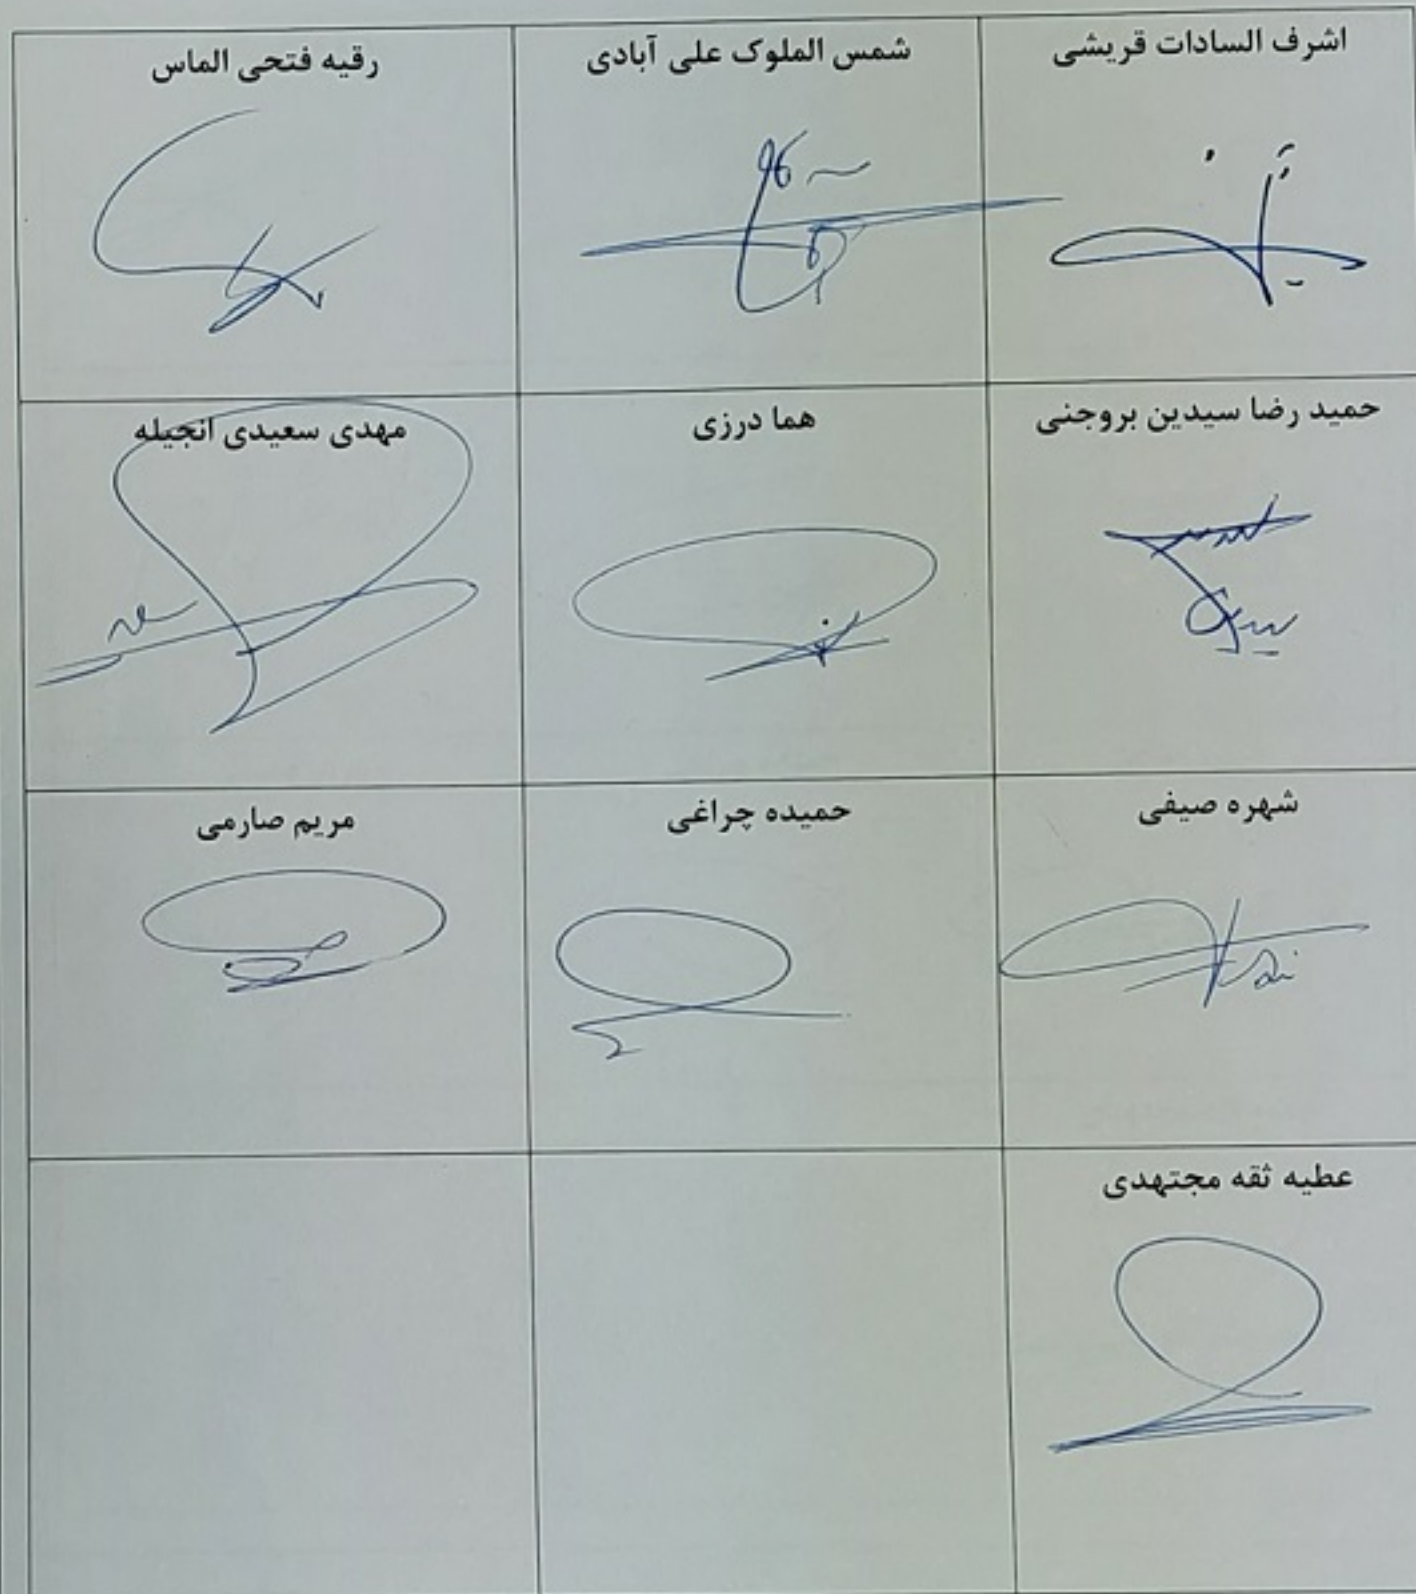 اشرف السادات قریشی
شمس الملوک علی آبادی
رقیه فتحی الماس
حمید رضا سیدین بروجنی
هما درزی
مهدی سعیدی انجیله
شهره صیفی
حمیده چراغی
مریم صارمی
عطیه ثقه مجتهدی